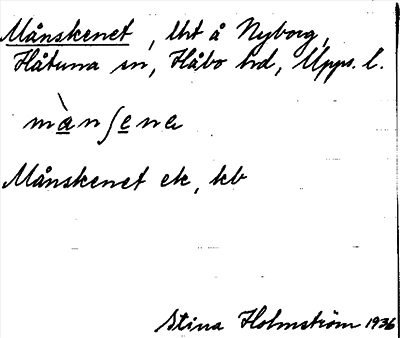 Månskenet, lht å Nyborg,
Håtuna sn, Håbo hd, Upps. l.
mànʃene
Månskenet ek, kb
Stina Holmström 1936